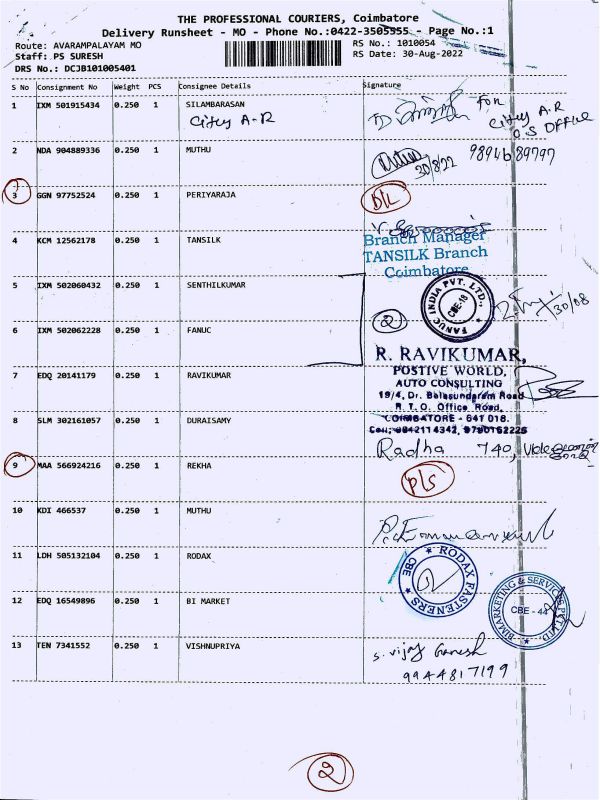 THE PROFESSIONAL COURIERS, Coimbatore
Delivery Runsheet - MO - Phone No.:0422-3505555 - Page No.:1
Route: AVARAMPALAYAM MO RS No.: 1010054
Staff: P5 SURESH RS Date: 30-Aug-2022
DRS No.: DCJB101005401
S No Consignment No Weight PCS Consignee Details Signature
1 IXM 501915434 0.250 1 SILAMBARASAN
Citey A.R For Citey A.R
O/S OFFICE
2 NDA 904889336 0.250 1 MUTHU 9894689797
30/8/22
3 GGN 97752524 0.250 1 PERIYARAJA D/L
4 KCM 12562178 0.250 1 TANSILK
Branch Manager
TANSILK Branch
Coimbatore
5 IXM 502060432 0.250 1 SENTHILKUMAR
FANUC INDIA PVT. LTD.,
CBE-18
30/08
6 IXM 502062228 0.250 1 FANUC 2
R. RAVIKUMAR,
POSTIVE WORLD,
7 EDQ 20141179 0.250 1 RAVIKUMAR
AUTO CONSULTING
19/4, Dr. Balasundaram Road
R. T. O. Office Road,
8 SLM 302161057 0.250 1 DURAISAMY
COIMBATORE - 641 018.
Cell: 9842114342, 9790152225
Radha 740,
9 MAA 566924216 0.250 1 REKHA
P/S
10 KDI 466537 0.250 1 MUTHU
11 LDH 505132104 0.250 1 RODAX
RODAX FASTENERS
CBE
12 EDQ 16549896 0.250 1 BI MARKET
BIMARKETING & SERVICES PVT LTD
CBE - 44
13 TEN 7341552 0.250 1 VISHNUPRIYA
S. Vijay Ganesh
9944817199
2